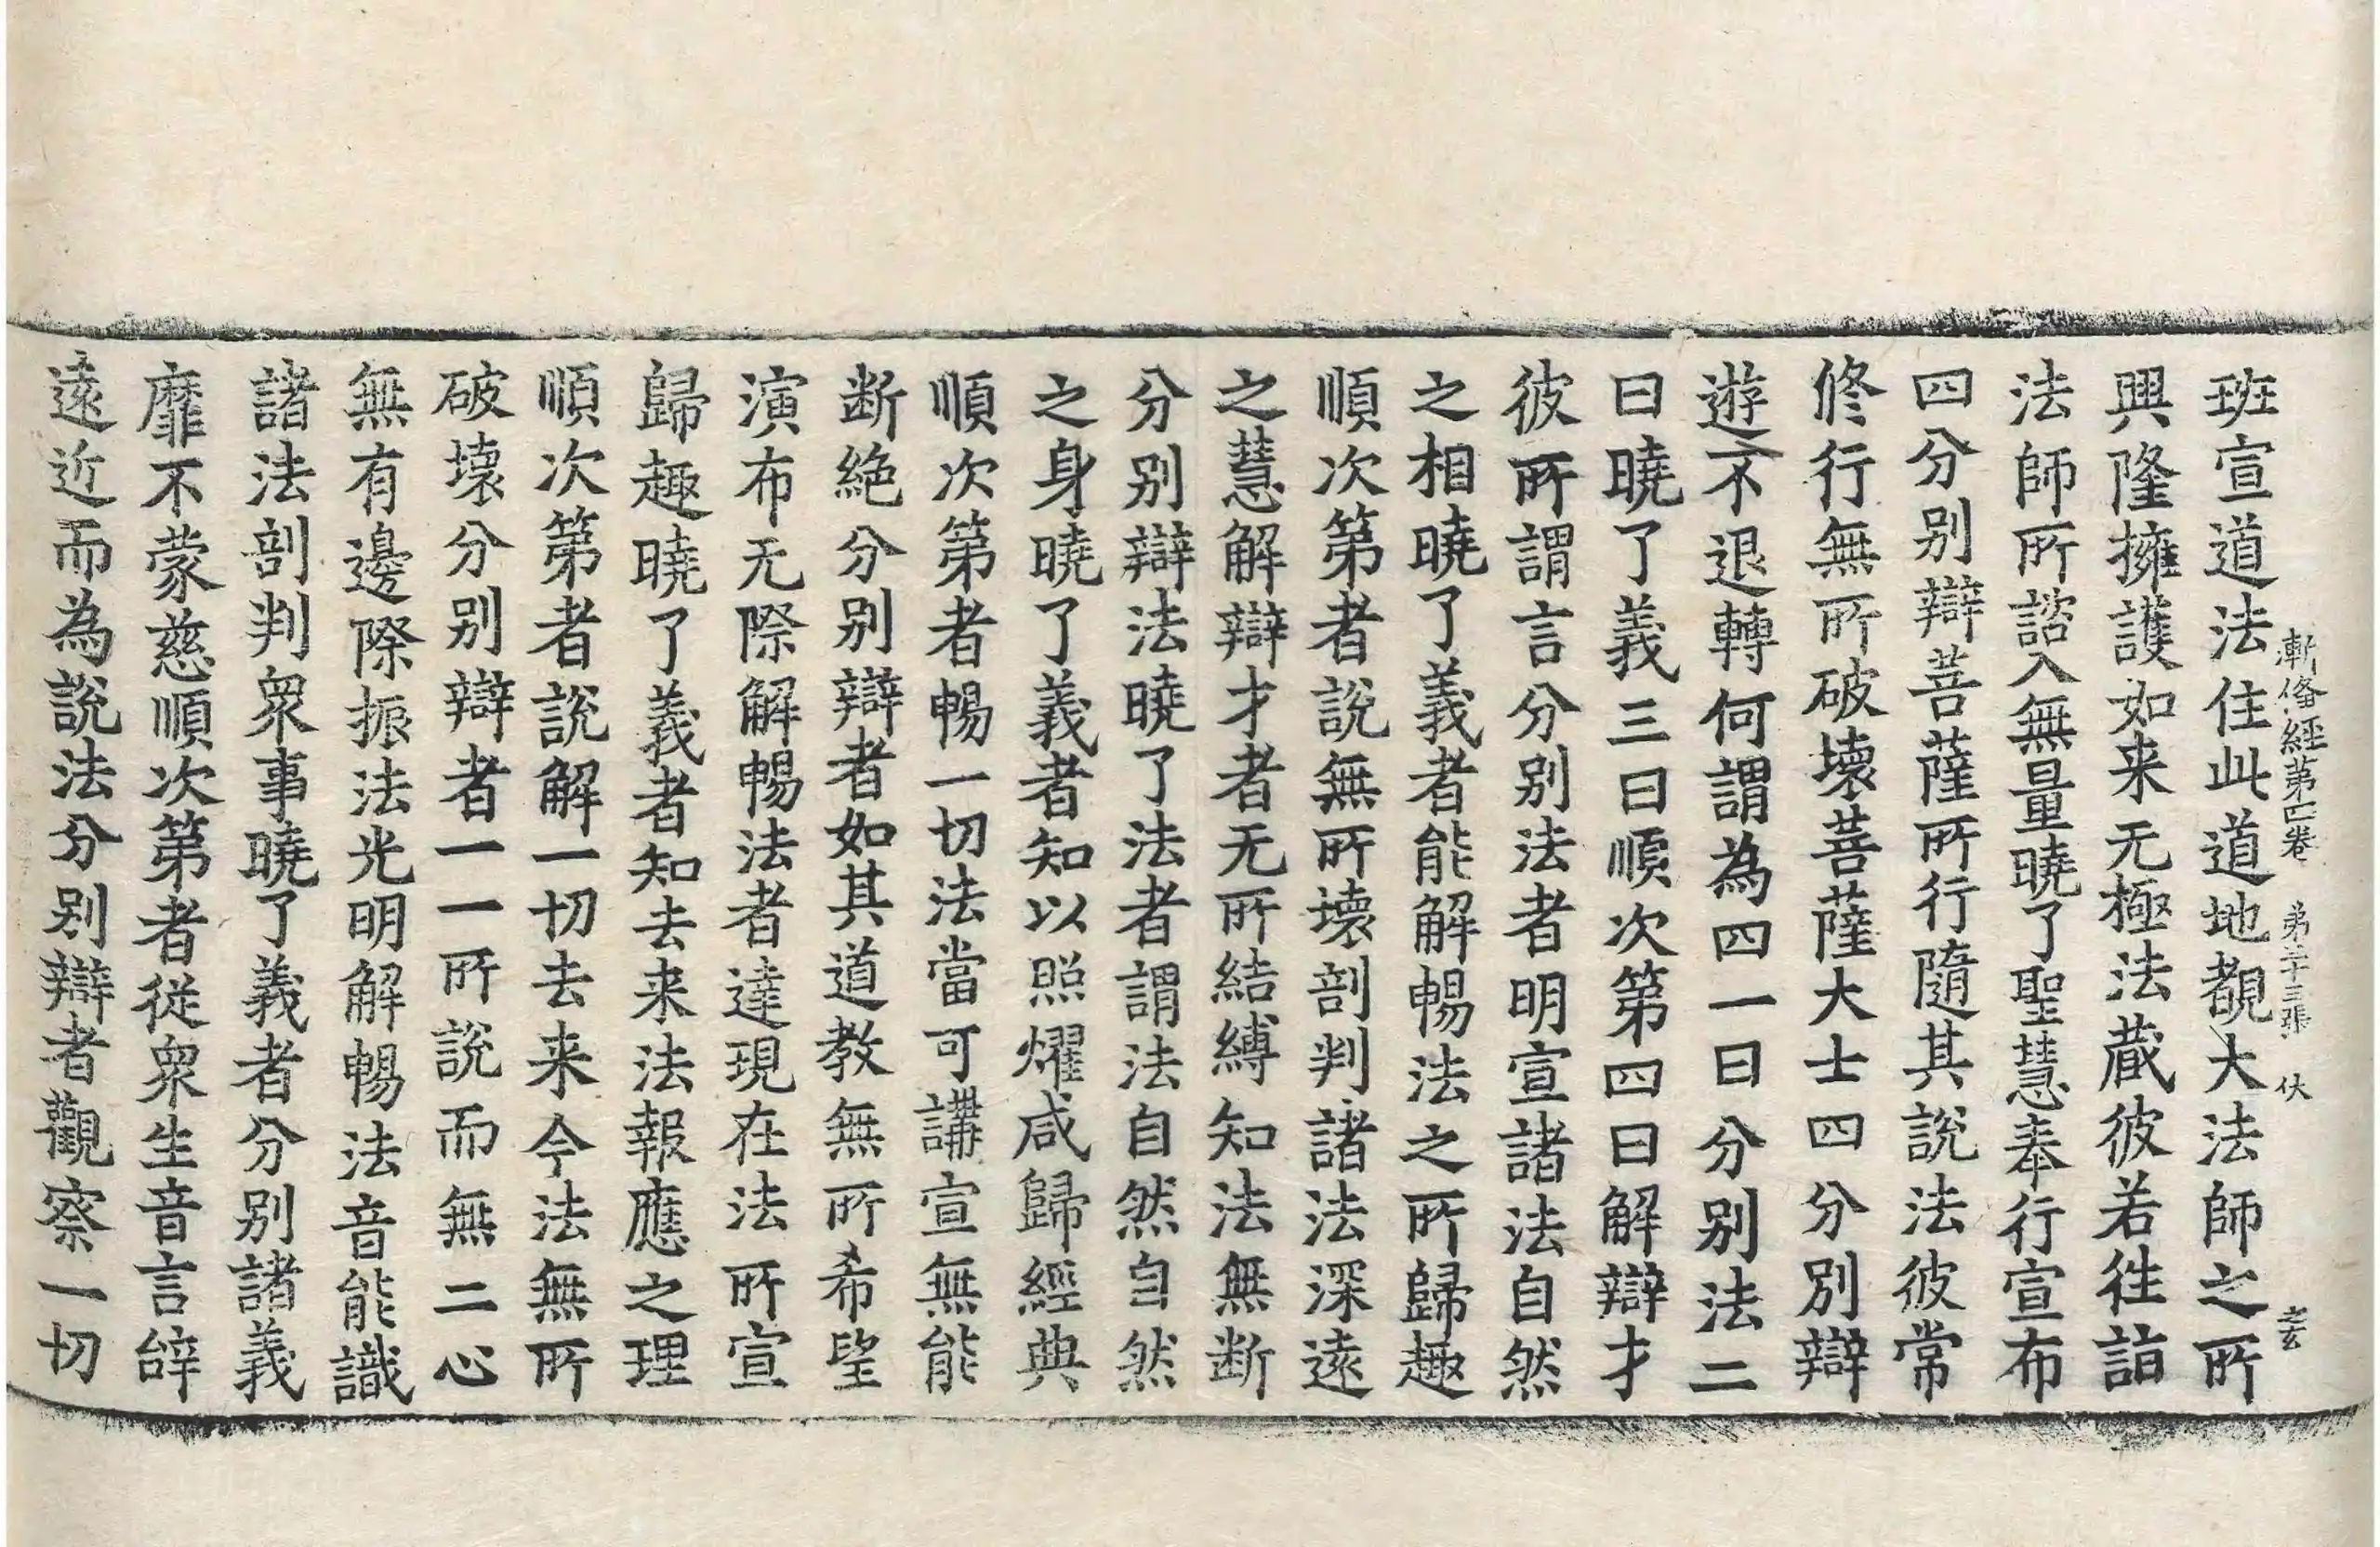 漸備經第四卷　第三十三張　伏
之玄
班宣道法住此道地覩大法師之所
興隆擁護如来无極法蔵彼若往詣
法師所諮入無量曉了聖慧奉行宣布
四分别辯菩薩所行隨其說法彼常
修行無所破壞菩薩大士四分別辯
遊不退轉何謂為四一曰分别法二
曰曉了義三曰順次第四曰解辯才
彼所謂言分别法者明宣諸法自然
之相曉了義者能解暢法之所歸趣
順次第者說無所壞剖判諸法深遠
之慧解辯才者无所結縛知法無断
分别辯法曉了法者謂法自然自然
之身曉了義者知以照燿咸歸經典
順次第者暢一切法當可講宣無能
断絶分别辯者如其道教無所希望
演布无際解暢法者達現在法所宣
歸趣曉了義者知去来法報應之理
順次第者說解一切去来今法無所
破壞分别辯者一一所說而無二心
無有邊際振法光明解暢法音能識
諸法剖判衆事曉了義者分别諸義
靡不蒙慈順次第者從衆生音言辝
遠近而為說法分别辯者觀察一切